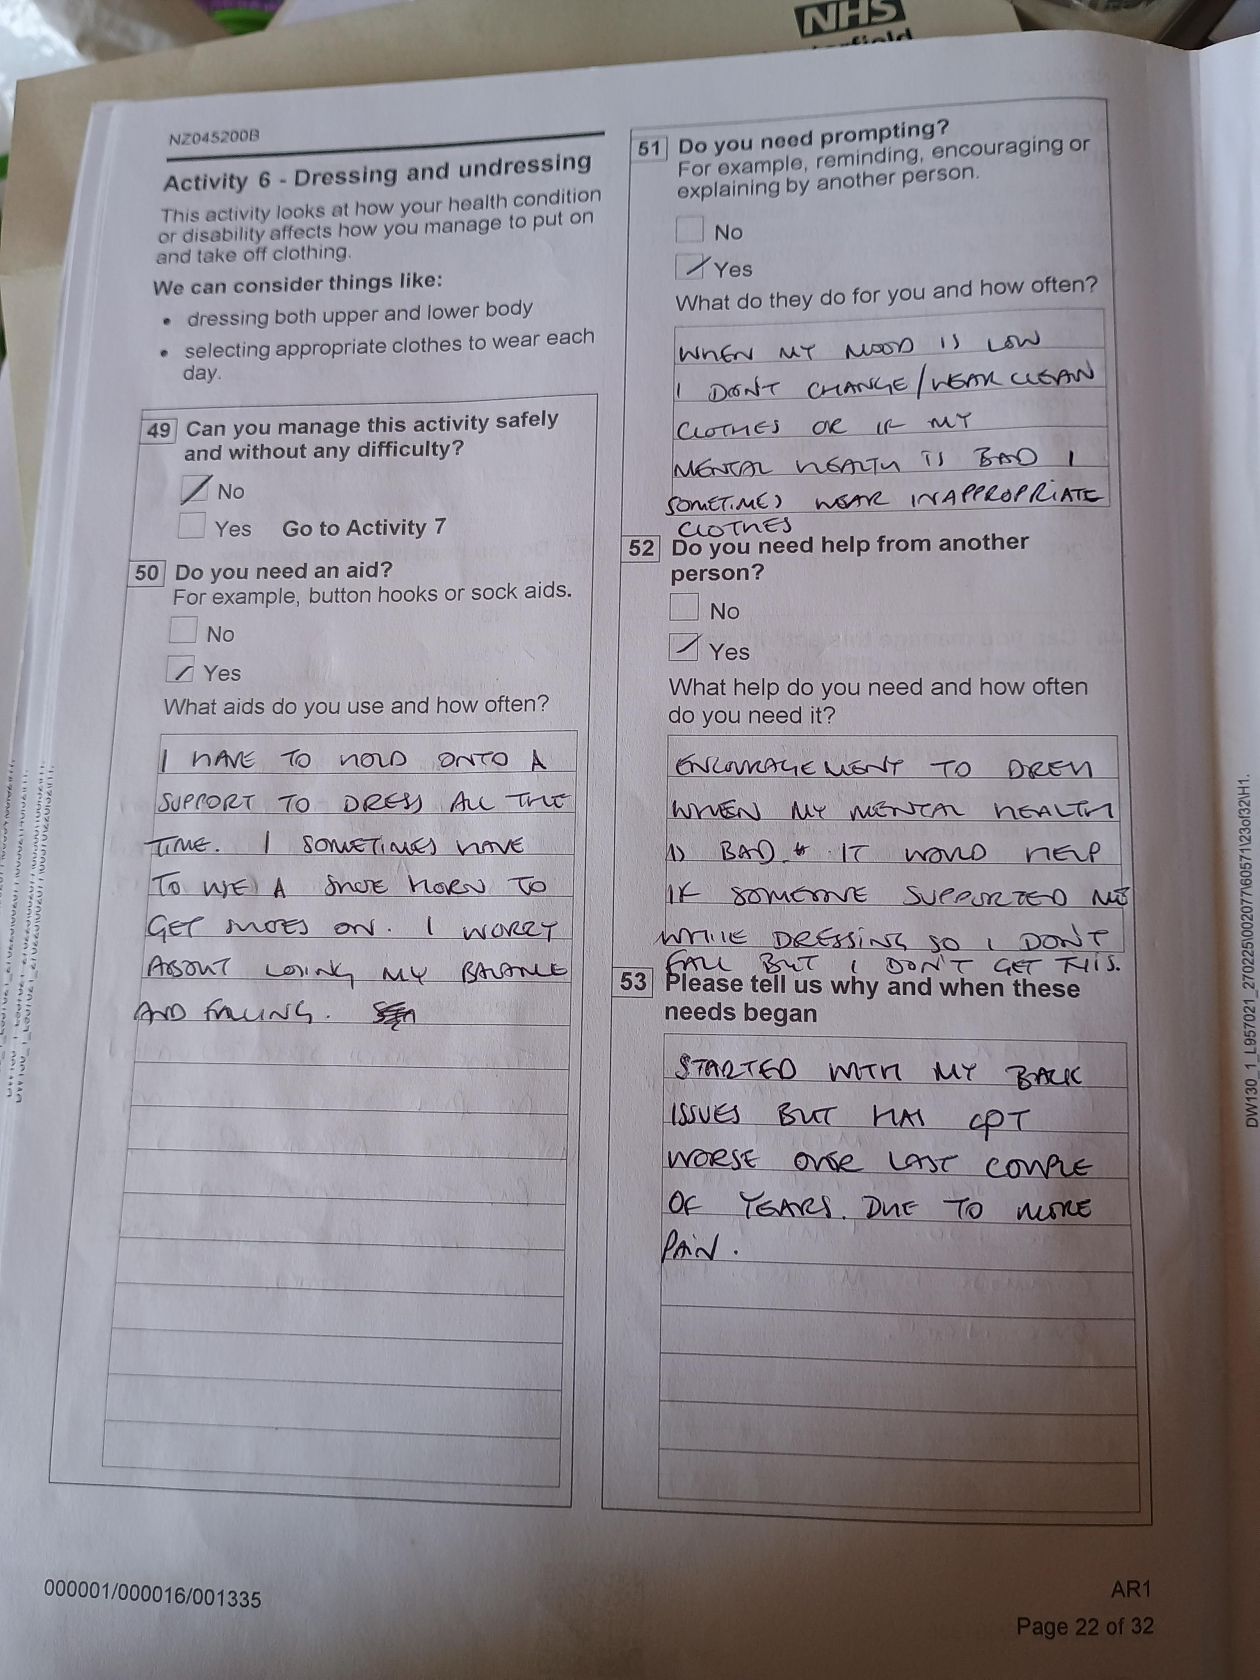 NHS
NZ045200B
Activity 6 - Dressing and undressing
This activity looks at how your health condition
or disability affects how you manage to put on
and take off clothing.
We can consider things like:
• dressing both upper and lower body
• selecting appropriate clothes to wear each
day.
49 Can you manage this activity safely
and without any difficulty?
No
Yes Go to Activity 7
50 Do you need an aid?
For example, button hooks or sock aids.
No
Yes
What aids do you use and how often?
I HAVE TO HOLD ONTO A
SUPPORT TO DRESS ALL THE
TIME. I SOMETIMES HAVE
TO USE A SHOE HORN TO
GET SHOES ON. I WORRY
ABOUT LOSING MY BALANCE
AND FALLING.
51 Do you need prompting?
For example, reminding, encouraging or
explaining by another person.
No
Yes
What do they do for you and how often?
WHEN MY MOOD IS LOW
I DON'T CHANGE/WEAR CLEAN
CLOTHES OR IF MY
MENTAL HEALTH IS BAD I
SOMETIMES WEAR INAPPROPRIATE
CLOTHES
52 Do you need help from another
person?
No
Yes
What help do you need and how often
do you need it?
ENCOURAGEMENT TO DRESS
WHEN MY MENTAL HEALTH
IS BAD. IT WOULD HELP
IF SOMEONE SUPPORTED ME
WHILE DRESSING SO I DON'T
FALL BUT I DON'T GET THIS.
53 Please tell us why and when these
needs began
STARTED WITH MY BACK
ISSUES BUT HAS GOT
WORSE OVER LAST COUPLE
OF YEARS. DUE TO MORE
PAIN.
DW130_1_L957021_270225\002077\60571\23of32\H1.
000001/000016/001335
AR1
Page 22 of 32